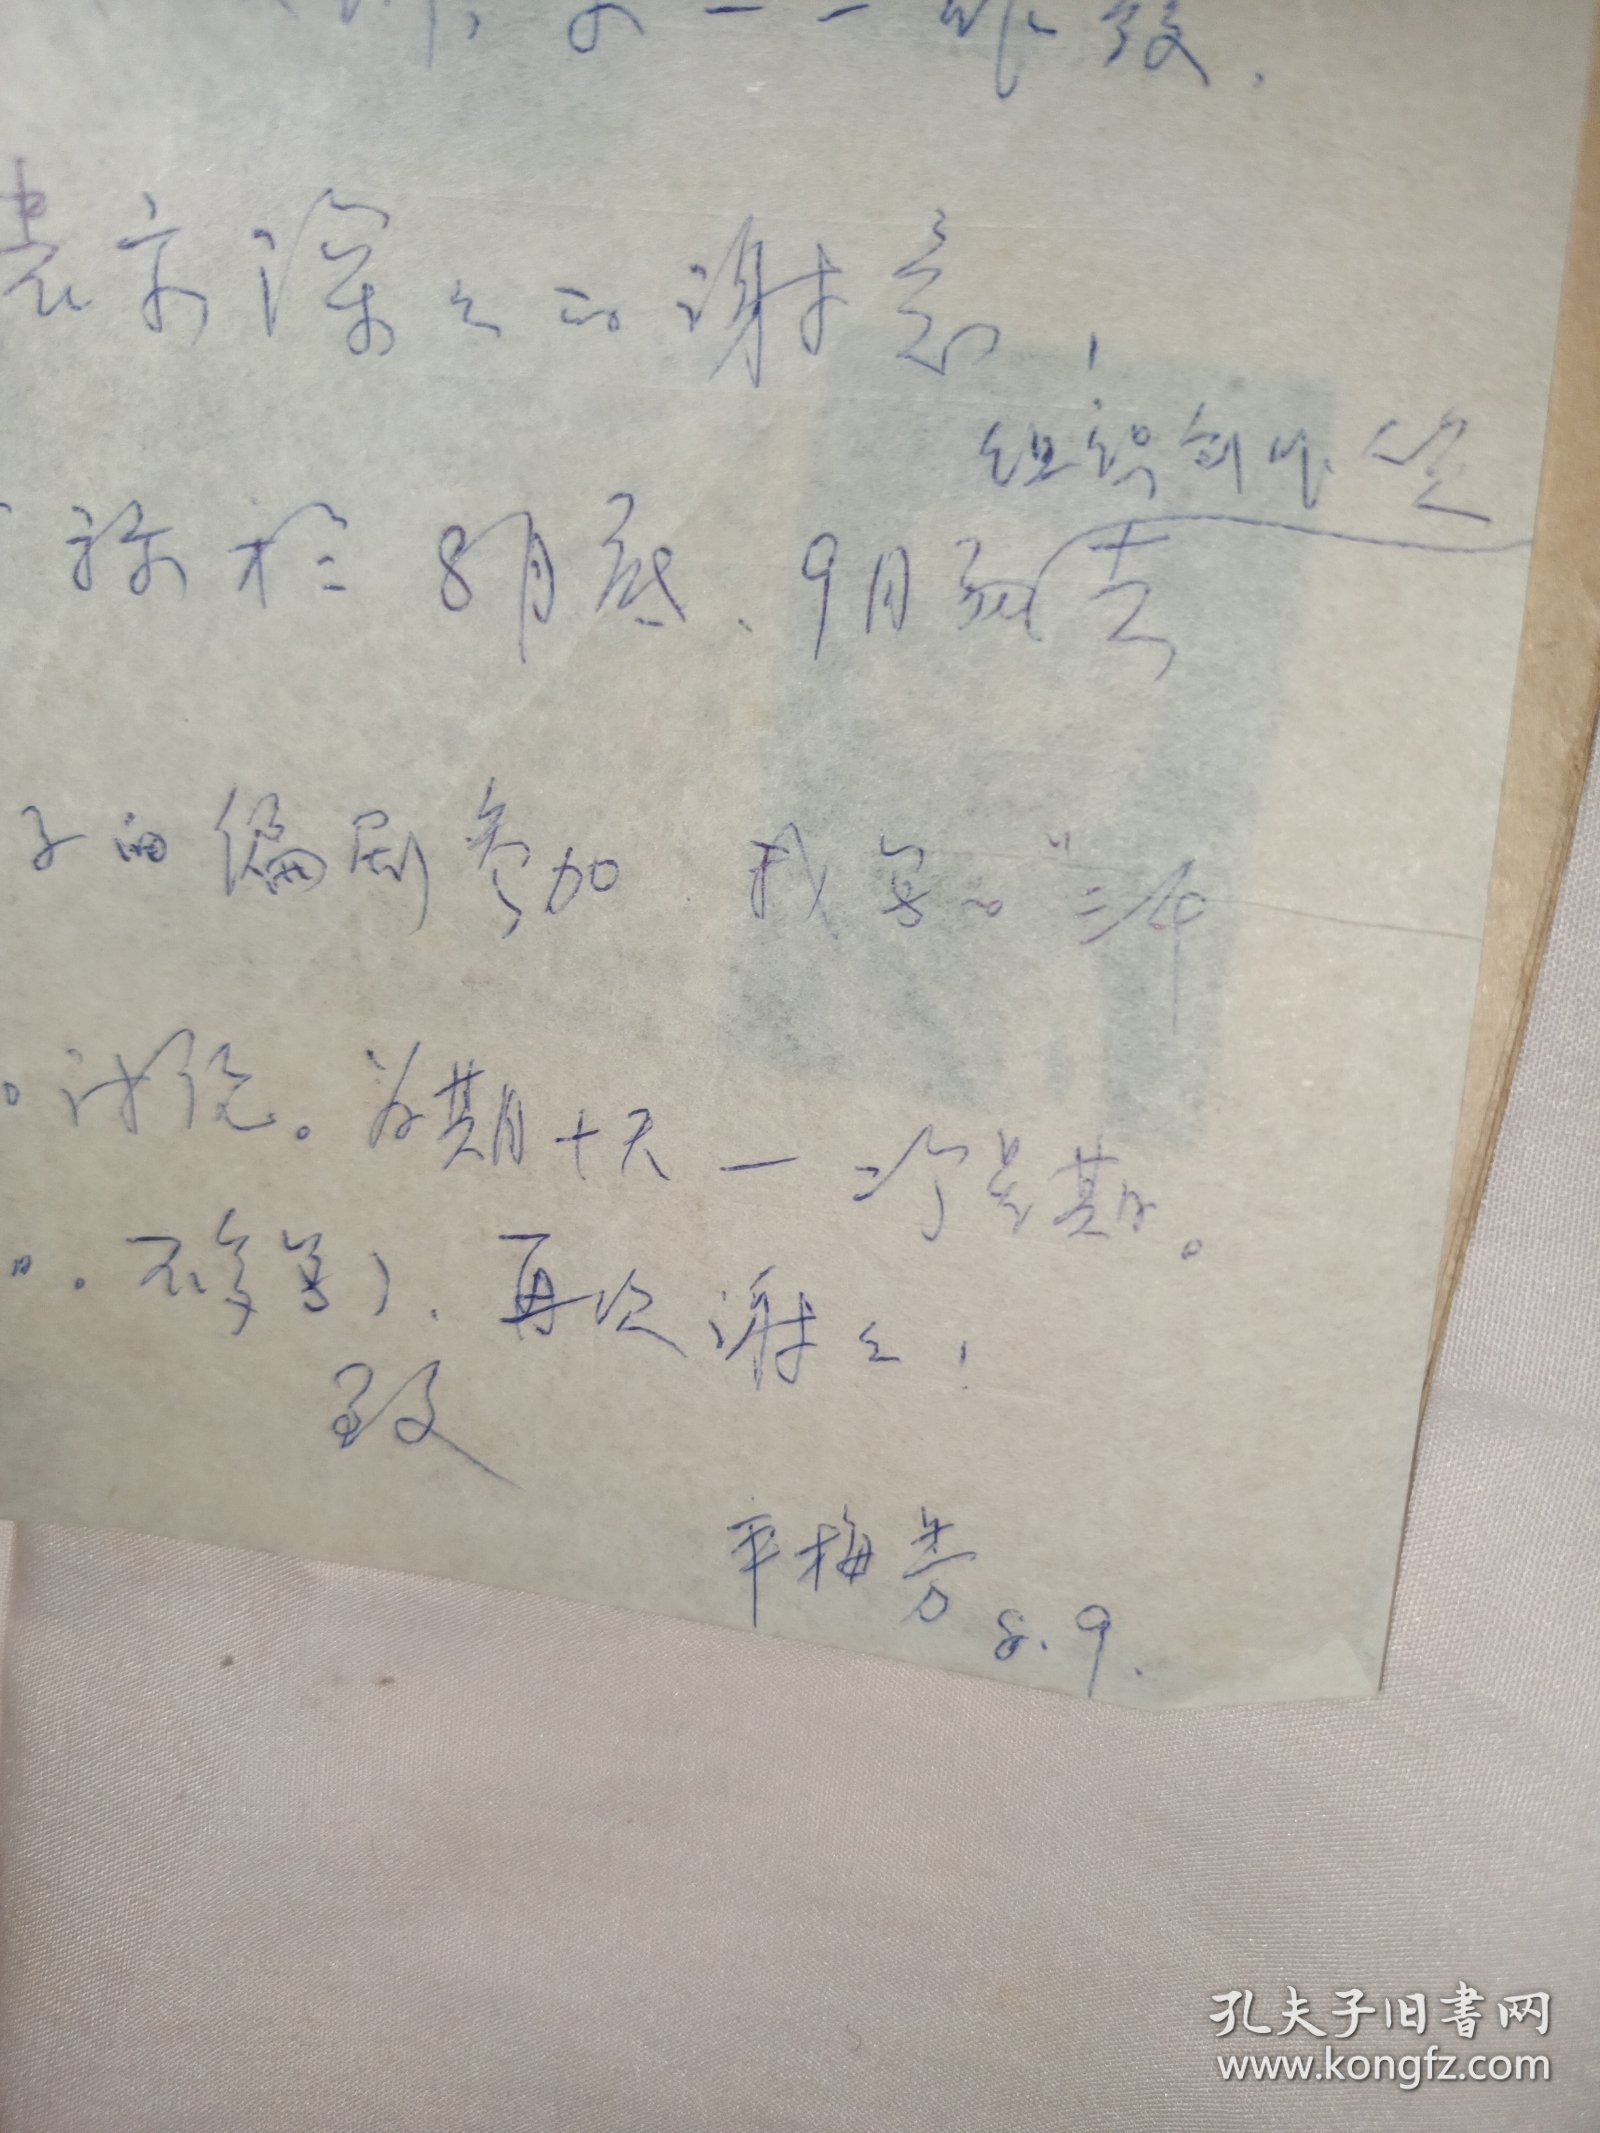 一一
表示深々的谢意，
组织创作
8月底、9月初去
子的编剧参加 我写的"三
讨论。为期十天一二个星期。
不多写），再次谢々，
致
平梅芳
8.9.
孔夫子旧书网
www.kongfz.com